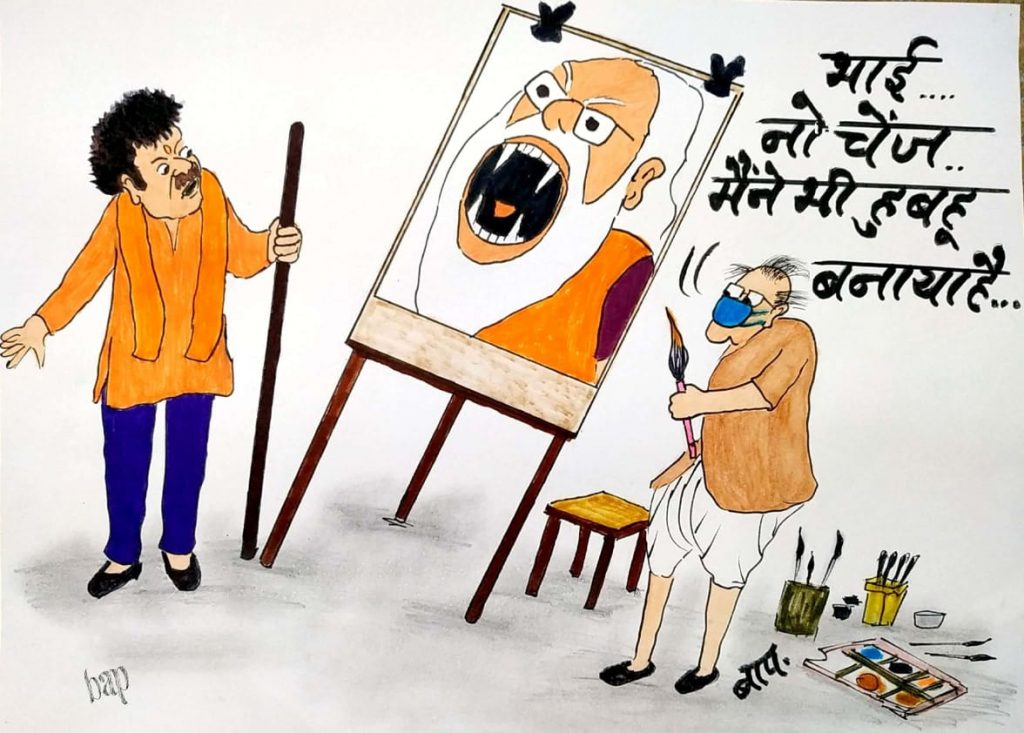 भाई....
नो चेंज..
मैंने भी हुबहू
बनाया है...
बाप.
bap